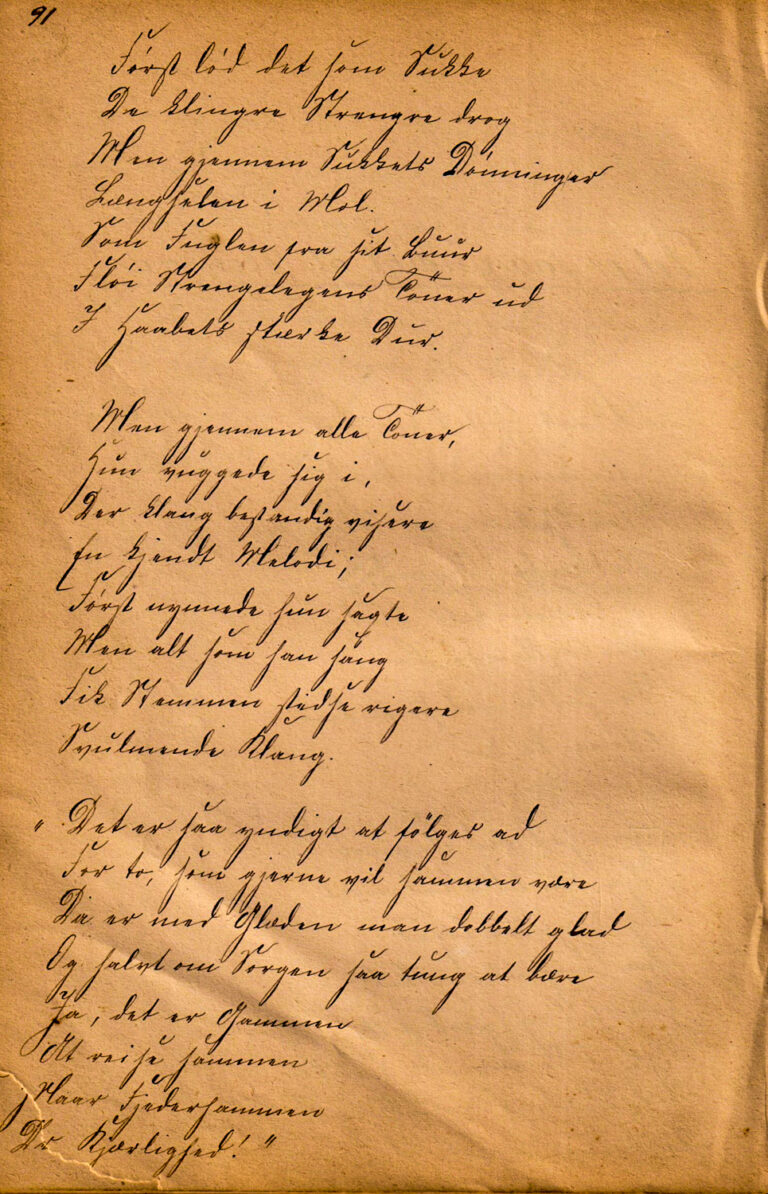 91
Först lød det som Sukke
De klingre Strengre drog
Men gjennem Sukkets Dönninger
Længselen i Mol.
Som Fuglen fra sit Buur
Flöi Strengelegens Töner ud
I Haabets stærke Dur.
Men gjennem alle Töner,
Hun vuggede sig i,
Der klang bestandig visere
En kjendt Melodi;
Först nynnede hun sagte
Men alt som han sang
Fik Stemmen stedse rigere
Svulmende Klang.
" Det er saa yndigt at fölges ad
For to, som gjerne vil sammen være
Da er med Glæden man dobbelt glad
Og halvt om Sorgen saa tung at bære
Ja, det er Gammen
At reise sammen
Naar Fjederhammen
Er Kjærlighed! "